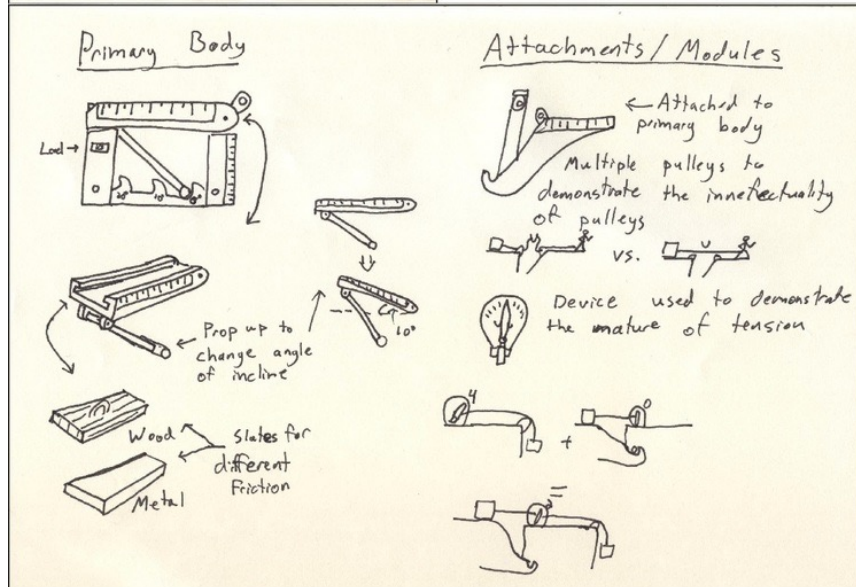 Primary Body
Lock →
Prop up to
change angle
of incline
10°
Wood
Metal
Slates for
different
Friction
Attachments / Modules
← Attached to
primary body
Multiple pulleys to
demonstrate the innefectuality
of pulleys
vs.
Device used to demonstrate
the nature of tension
4
+
0
=